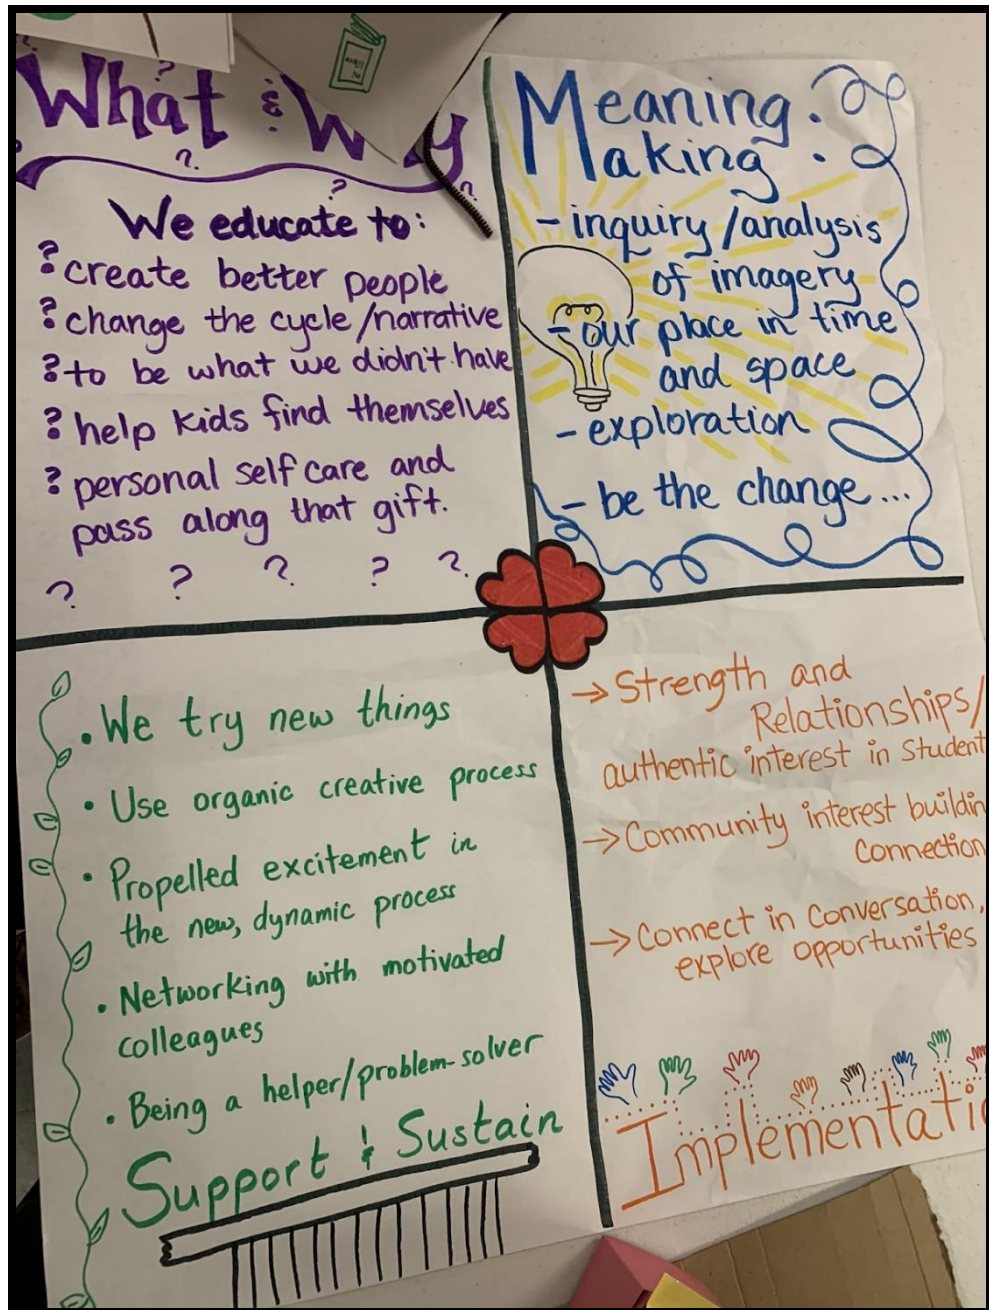 What & Why
We educate to:
? create better people
? change the cycle/narrative
? to be what we didn't have
? help kids find themselves
? personal self care and
pass along that gift.
? ? ? ? ?
Meaning
Making :
- inquiry/analysis
of imagery
- our place in time
and space
- exploration
- be the change...
• We try new things
• Use organic creative process
• Propelled excitement in
the new, dynamic process
• Networking with motivated
colleagues
• Being a helper/problem-solver
Support & Sustain
→ Strength and
Relationships/
authentic interest in Student
→ Community interest buildin
Connection
→ Connect in Conversation,
explore opportunities
Implementatio